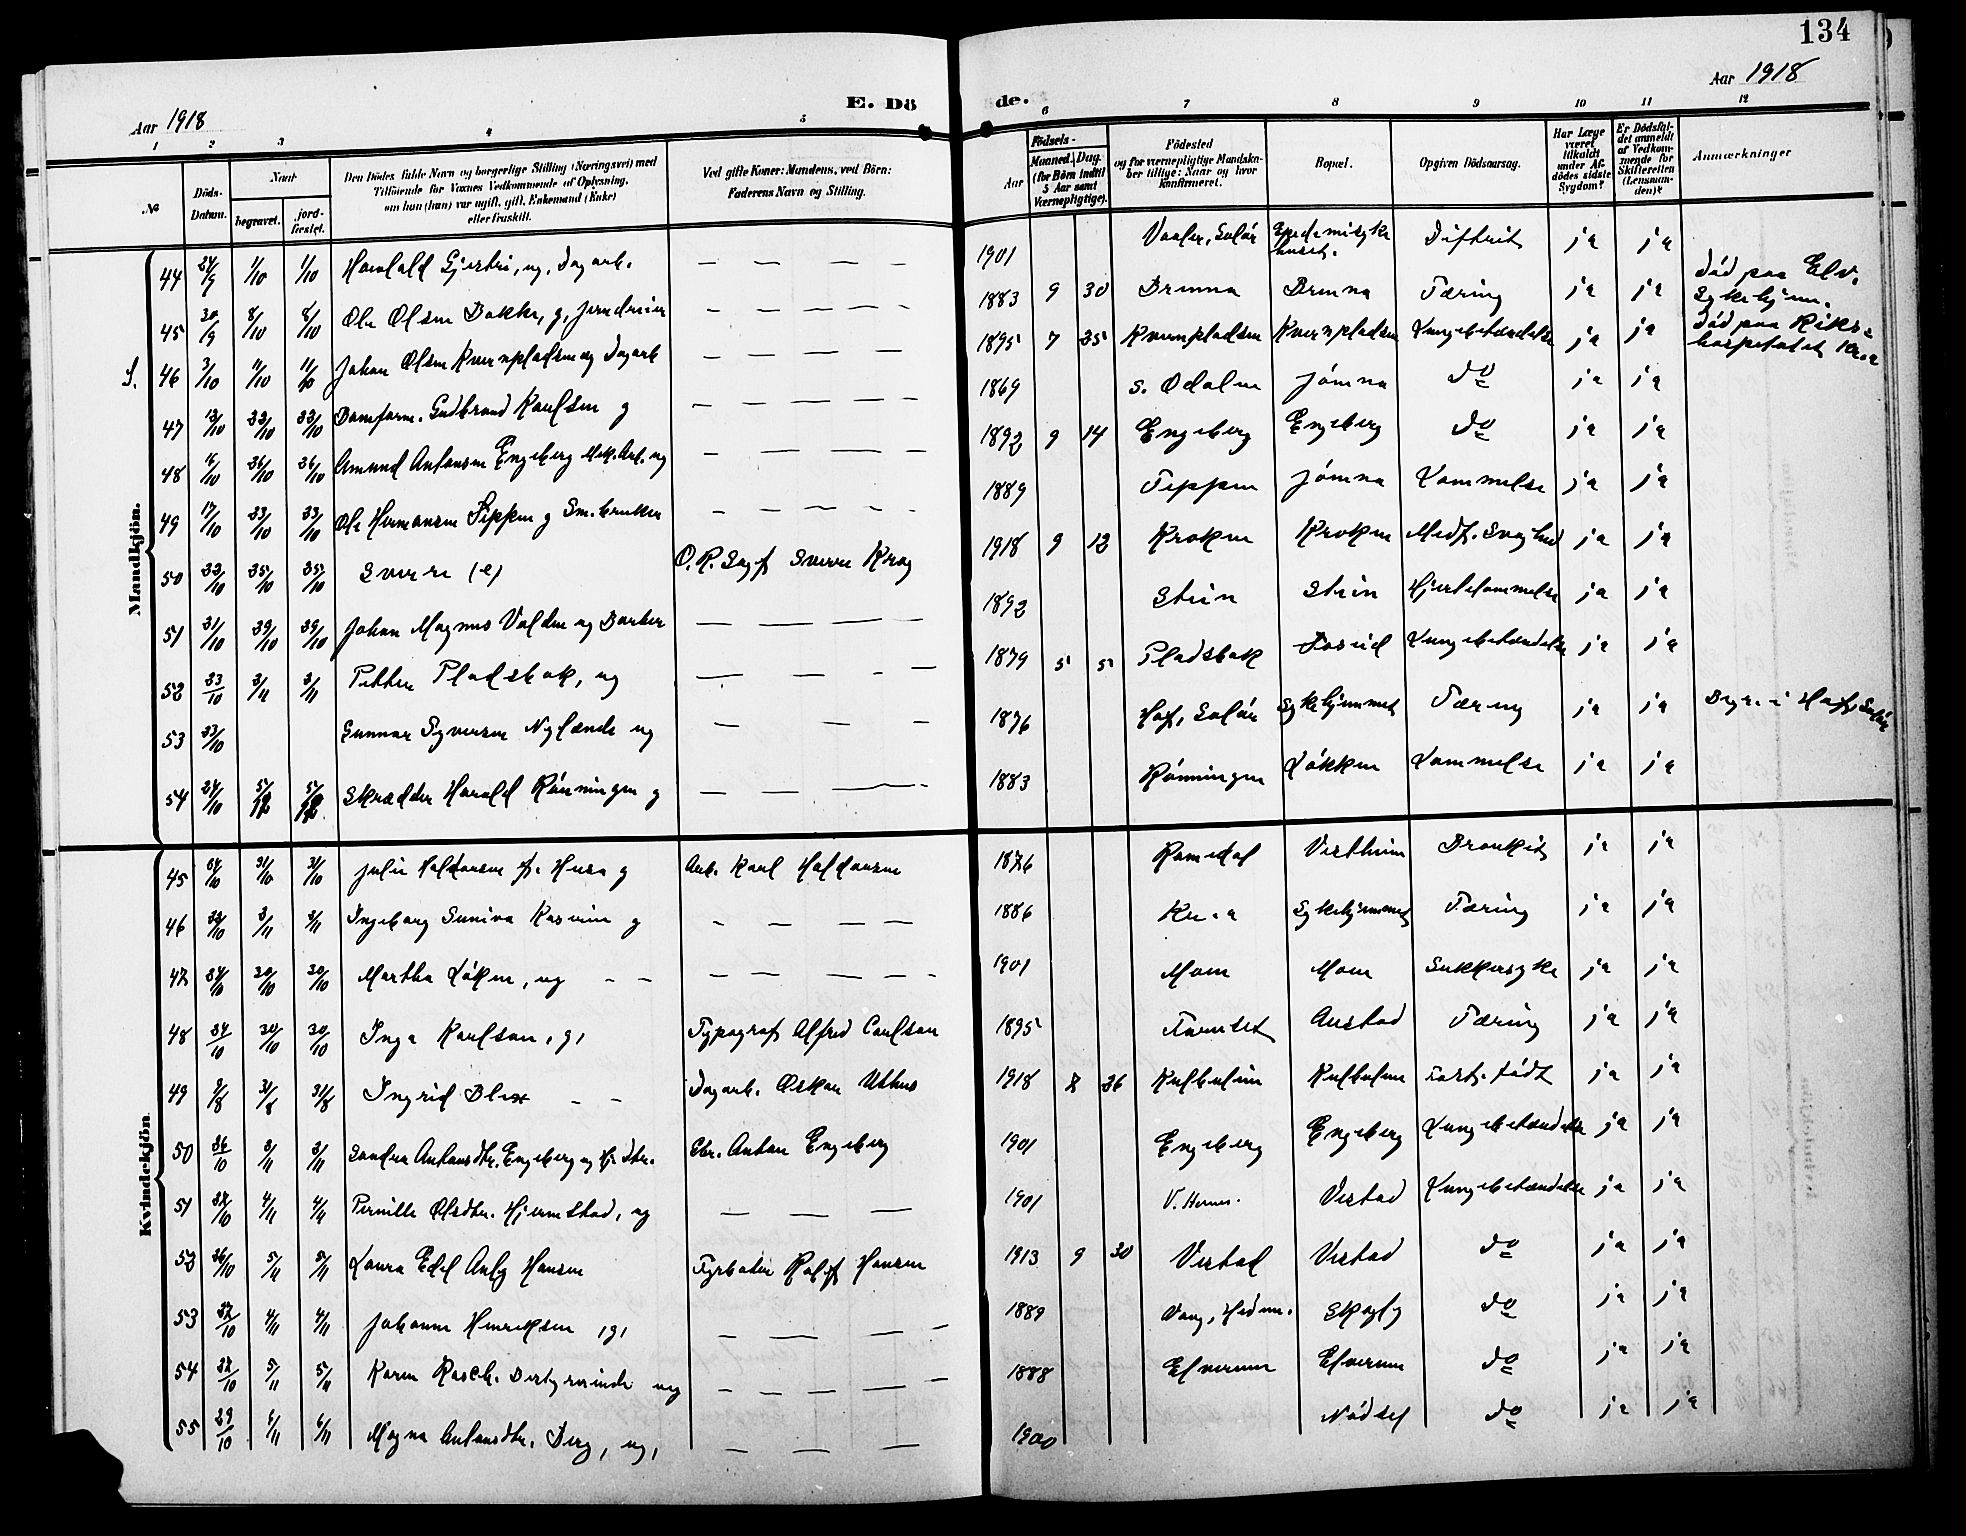 134
Aar 1918
E. Dö
de.
Aar 1918
1 2 3 4 5 6 7 8 9 10 11 12
№
Döds-Datum.
Naar
begravet.
jord-fæstet.
Den Dödes fulde Navn og borgerlige Stilling (Næringsvei) med
Tilföiende for Voxnes Vedkommende af Oplysning,
om han (hun) var ugift, gift, Enkemand (Enke)
eller fraskilt.
Ved gifte Koner: Mandens, ved Börn:
Faderens Navn og Stilling.
Födsels-
Aar
Maaned. Dag.
(for Börn indtil
5 Aar samt
Værnepligtige).
Födested
og for værnepligtige Mandska-
ber tillige: Naar og hvor
konfirmeret.
Bopæl.
Opgiven Dödsaarsag.
Har Læge
været
tilkaldt
under Af-
dödes sidste
Sygdom?
Er Dödsfal-
det anmeldt
af Vedkom-
mende for
Skifteretten
(Lensman-
den)?
Anmærkninger
Mandkjön.
44 24/9 1/10 1/10 Harald Gjestri, ug, Dagarb. — — — — 1901 Vaaler, Solör Epidemisyke huset. Difterit ja ja
45 30/9 8/10 8/10 Ole Olsen Bakke, g, — — — — 1883 9 30 Brenna Brenna Tæring ja ja Död paa Elv. Sykehjem.
S. 46 3/10 11/10 11/10 Johan Olsen Kvernpladsen ug Dagarb — — — — 1895 7 25 Kvernpladsen Kvernpladsen Lungebetændelse ja ja Död paa Riks-hospitalet Kr.a
47 13/10 22/10 22/10 Banform. Gudbrand Karlsen g — — — — 1869 S. Odalen Jömna do ja ja
48 16/10 26/10 26/10 Amund Antonsen Engeberg Mek. Arb. ug — — — — 1892 9 14 Engeberg Engeberg do ja ja
49 17/10 23/10 23/10 Ole Hermansen Teppen g Sm.bruker — — — — 1889 Teppen Jömna Lammelse ja ja
50 22/10 25/10 25/10 Sverre (e) O. R. Sagf Sverre Krog 1918 9 12 Kroken Kroken Medf. Svaghed ja ja
51 21/10 29/10 29/10 Johan Magnus Valden ug Barber — — — 1892 Stein Stein Hjertelammelse ja ja
52 23/10 2/11 2/11 Petter Pladsbak, ug — — - — 1879 5 5 Pladsbak Lungebetændelse ja ja
53 23/10 Gunnar Syversen Nylænde ug — — — 1876 Hof, Solör Sykehjemmet Tæring ja ja Begr. i Hof, Solör
54 24/10 Skrædder Harald Rönningen g — — — 1883 Rönningen Lökken Lammelse ja ja
Kvindekjön
45 24/10 31/10 31/10 Julie Haldorsen f. g Arb. Karl Haldorsen 1876 Romedal Vestheim Bronkit ja ja
46 2/11 2/11 Ingeborg Suniva g — — — — 1886 Kr.a Sykehjemmet Tæring ja ja
47 24/10 30/10 30/10 Martha Löken, ug — — — — — — 1901 Mom Mom Sukkersyke ja ja
48 24/10 30/10 30/10 Inga Karlsen, g, Typograf Alfred Carlsen 1895 Austad Tæring ja ja
49 9/8 31/8 31/8 Ingrid — — Dagarb. Oskar Uthus 1918 8 26 Kulbulien Kulbulien födt ja ja
50 26/10 3/11 3/11 Sandra Antonsdtr. Engeberg ug Hj. dtr. Gbr. Anton Engeberg 1901 Engeberg Engeberg Lungebetændelse ja ja
51 27/10 4/11 4/11 Pernille Olsdtr. Hjermstad, ug — — — 1901 V. Hernes. Vestad Lungebetændelse ja ja
52 26/10 5/11 5/11 Laura Edel Hansen Fyrböter Rolf Hansen 1913 9 30 Vestad Vestad do ja ja
53 27/10 4/11 4/11 Johanne Henriksen, g, — — — — 1889 Vang, Hedm. Skogly do ja ja
54 27/10 5/11 5/11 Karen Rasch. Bestyrerinde ug — — — — 1888 Elverum Elverum do ja ja
55 29/10 6/11 6/11 Magna Antonsdtr. Berg, ug, — — — 1900 Nödset do ja ja